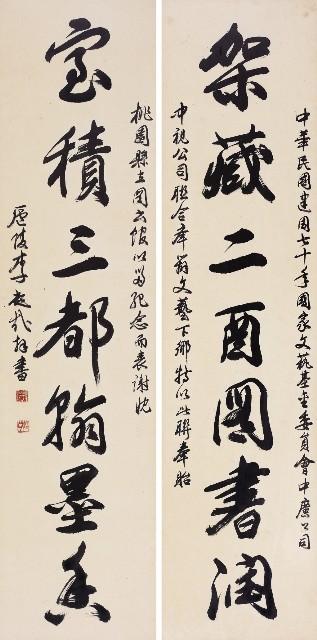 中華民國建國七十年國家文藝基金委員會中廣公司
架藏二酉圖書潤
中視公司聯合舉辦文藝下鄉特以此聯奉貽
桃園縣立圖書館以留紀念而表謝忱
室積三都翰墨香
廬陵李超哉拜書